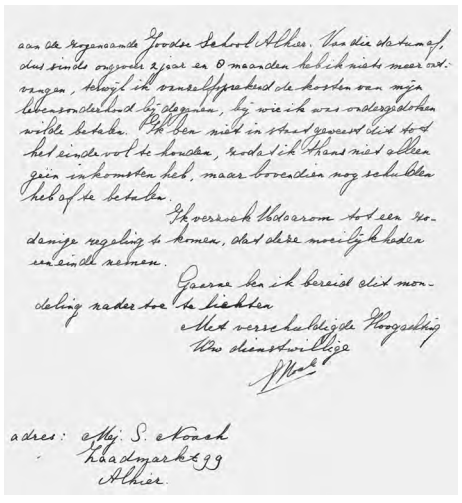 aan de zogenaamde Joodse School Alhier. Van die datum af,
dus sinds ongeveer 2 jaar en 8 maanden heb ik niets meer ont-
vangen, terwijl ik vanzelfsprekend de kosten van mijn
levensonderhoud bij degenen, bij wie ik was ondergedoken
wilde betalen. Ik ben niet in staat geweest dit tot
het einde vol te houden, zodat ik thans niet alleen
geen inkomsten heb, maar bovendien nog schulden
heb af te betalen.
Ik verzoek U daarom tot een zo-
danige regeling te komen, dat deze moeilijkheden
een einde nemen.
Gaarne ben ik bereid dit mon-
deling nader toe te lichten
Met verschuldigde Hoogachting
Uw dienstwillige
SNoach
adres: Mej. S. Noach
Zaadmarkt 99
Alhier.